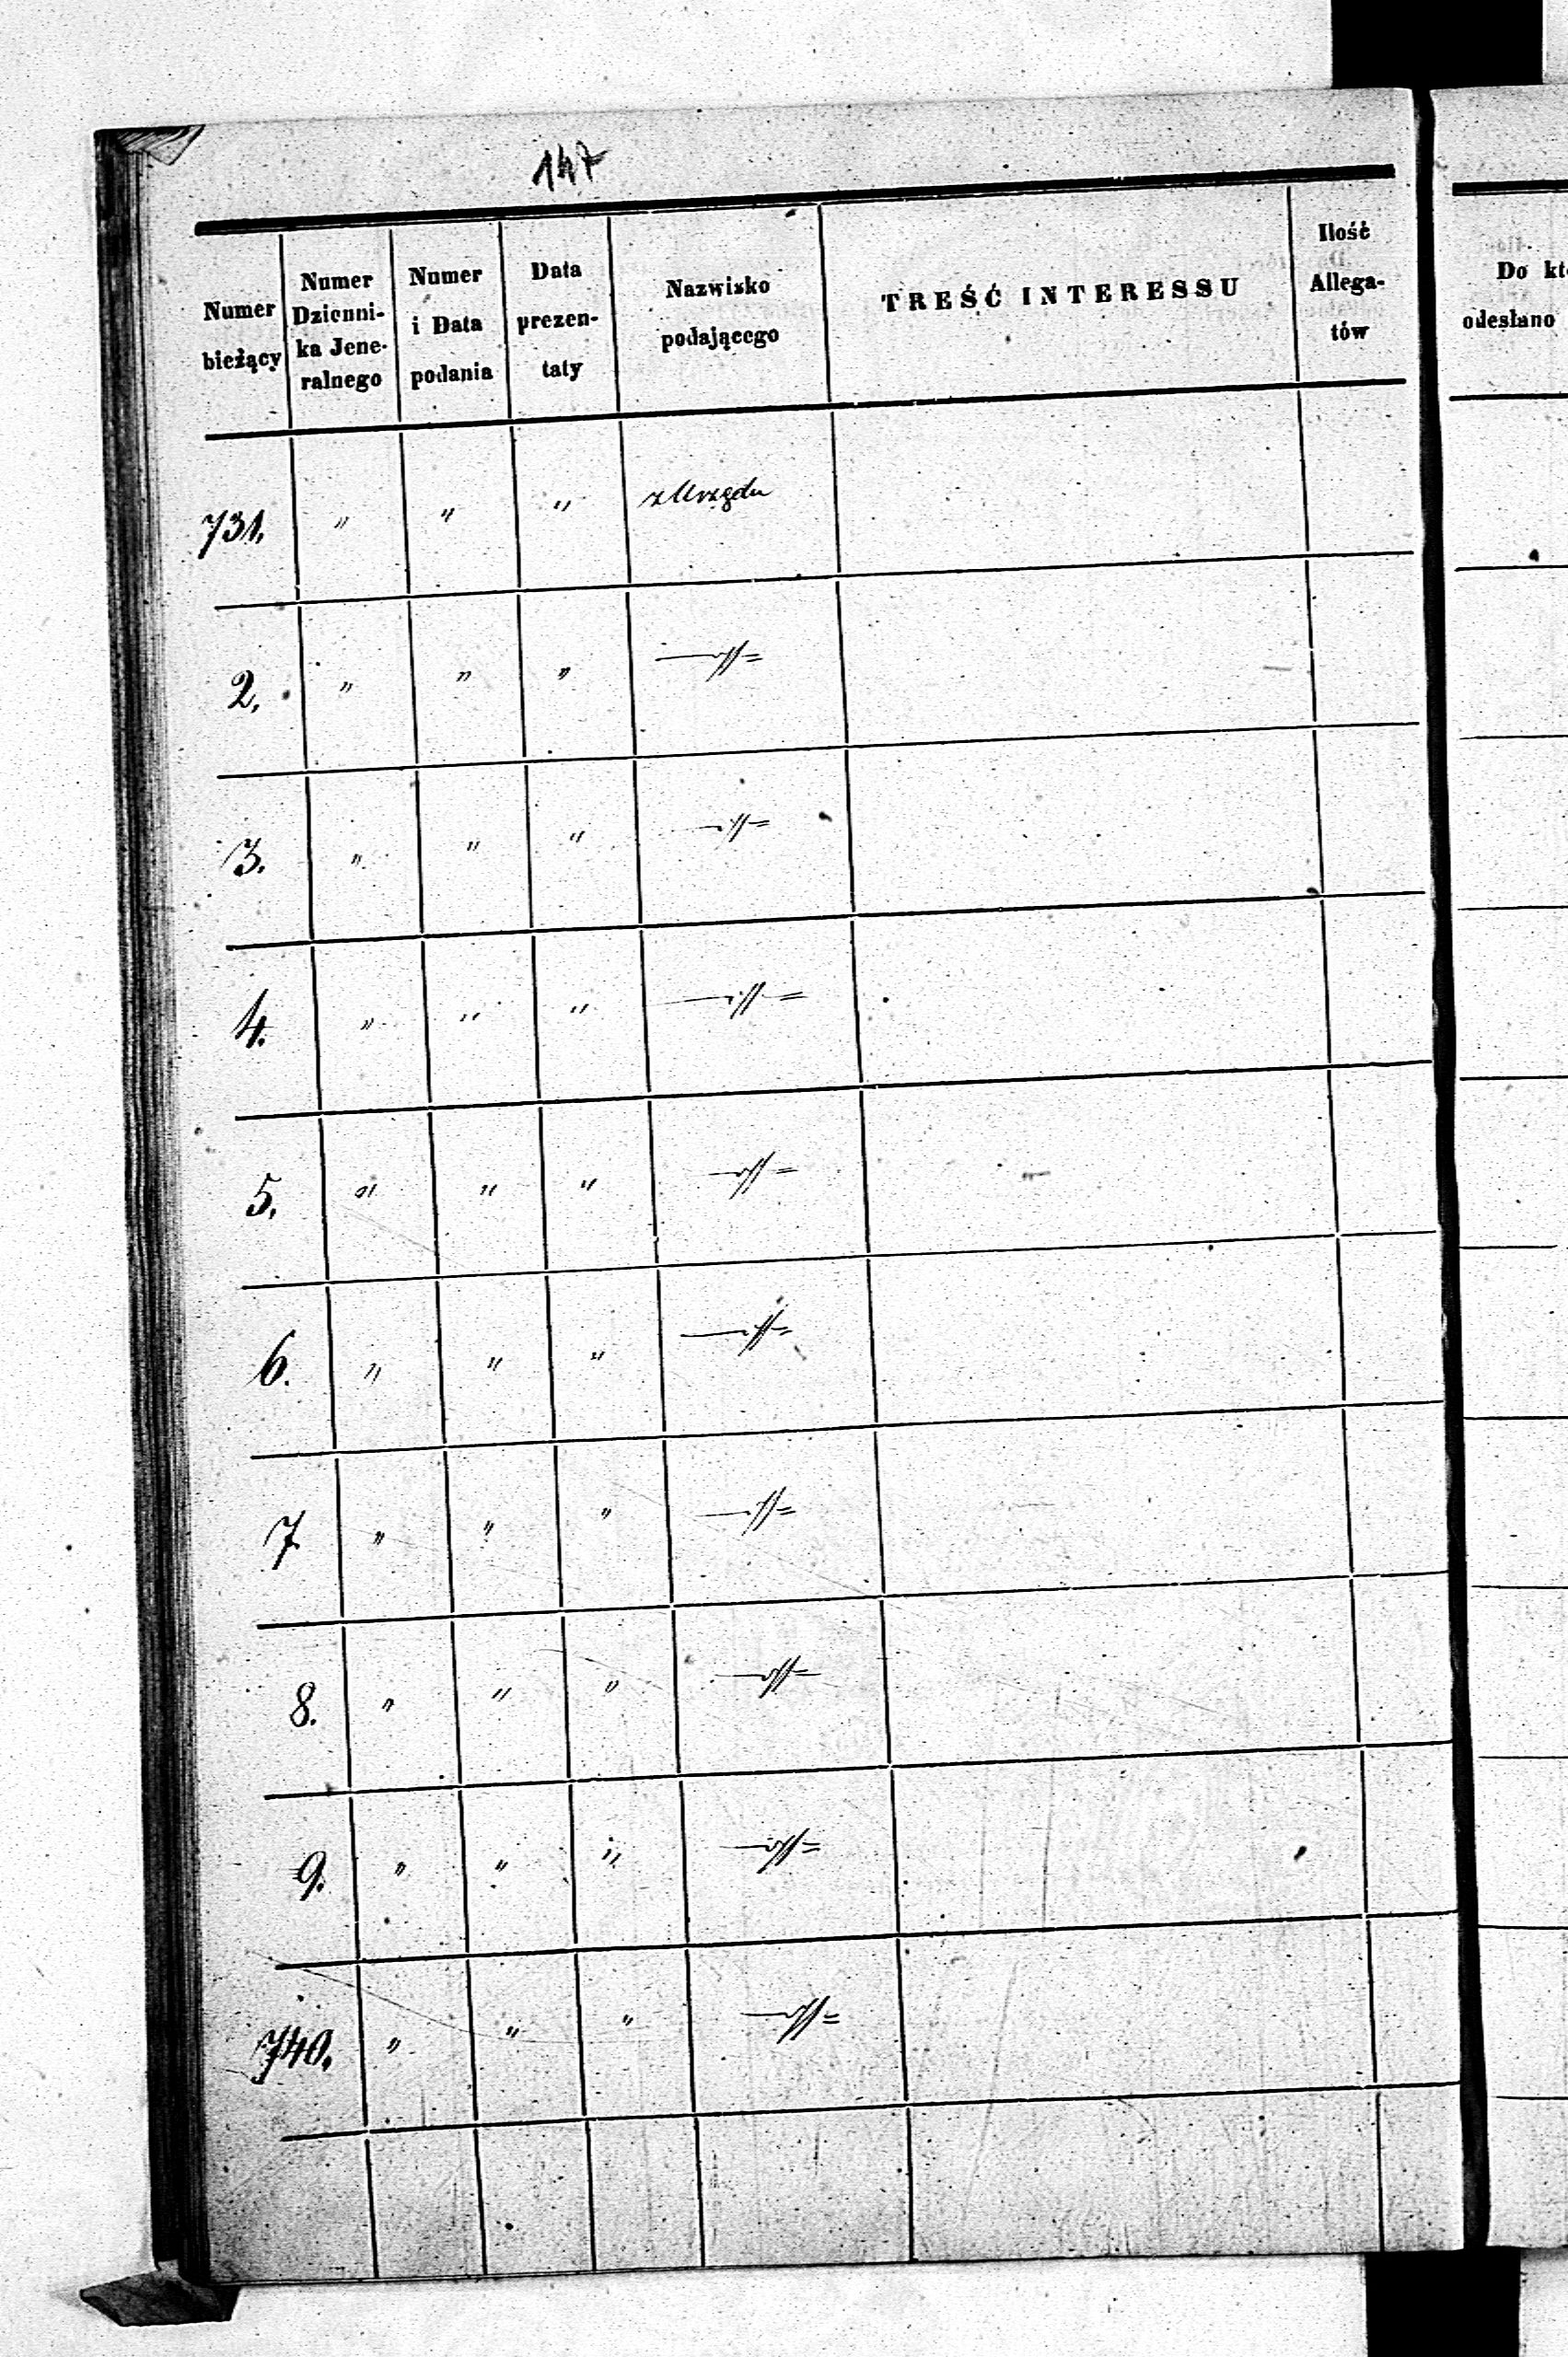 147
Numer bieżący
Numer Dzienni-ka Jene-ralnego
Numer i Data podania
Data prezen-taty
Nazwisko podającego
TREŚĆ INTERESSU
Ilość Allega-tów
Do kt
odesłano
731. " " " z Urzędu
2. " " " —//=
3. " " " —//=
4. " " " —//=
5. " " " —//=
6. " " " —//=
7 " " " —//=
8. " " " —//=
9. " " " —//=
740. " " " —//=